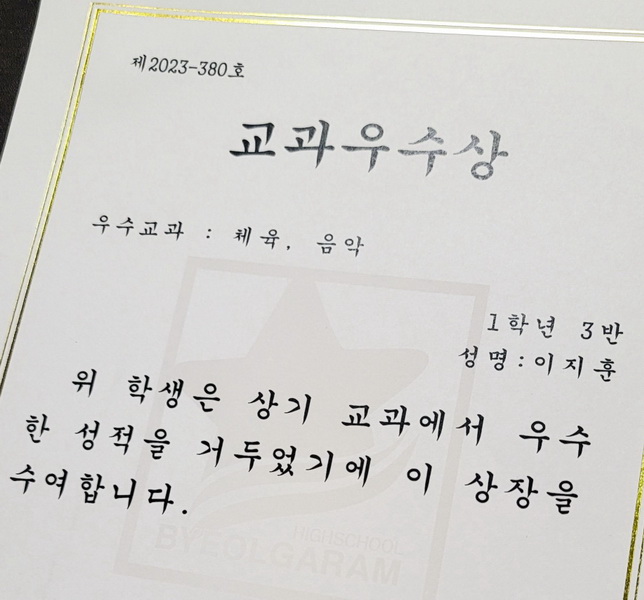 제2023-380호
교과우수상
우수교과 : 체육, 음악
1학년 3반
성명:이지훈
위 학생은 상기 교과에서 우수
한 성적을 거두었기에 이 상장을
수여합니다.
HIGHSCHOOL
BYEOLGARAM